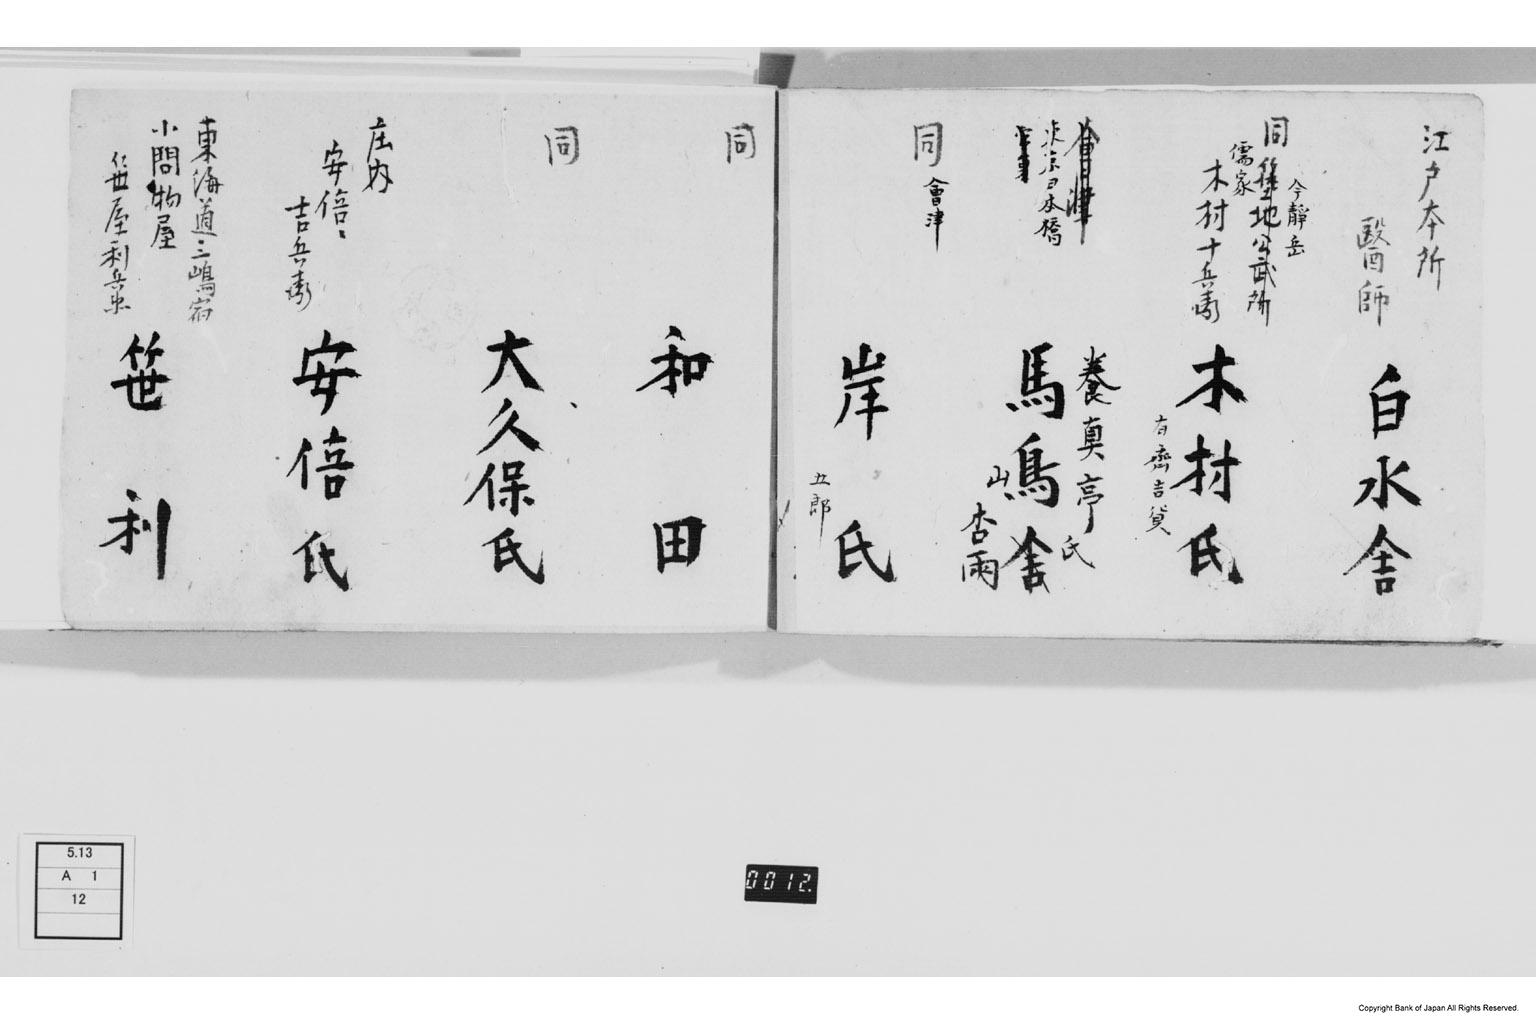 江戸本所
醫師
白水舎
同
今靜岳
地公武所
儒家
木村十兵衛
木村氏
有齊吉貨
會津
東京日本橋
養真亭氏
馬鳥舎
山
杏雨
同
會津
岸氏
五郎
同
和田
同
大久保氏
庄内
安倍
吉兵衛
安倍氏
東海道三嶋宿
小間物屋
笹屋利兵衛
笹利
5.13
A 1
12
0012.
Copyright Bank of Japan All Rights Reserved.